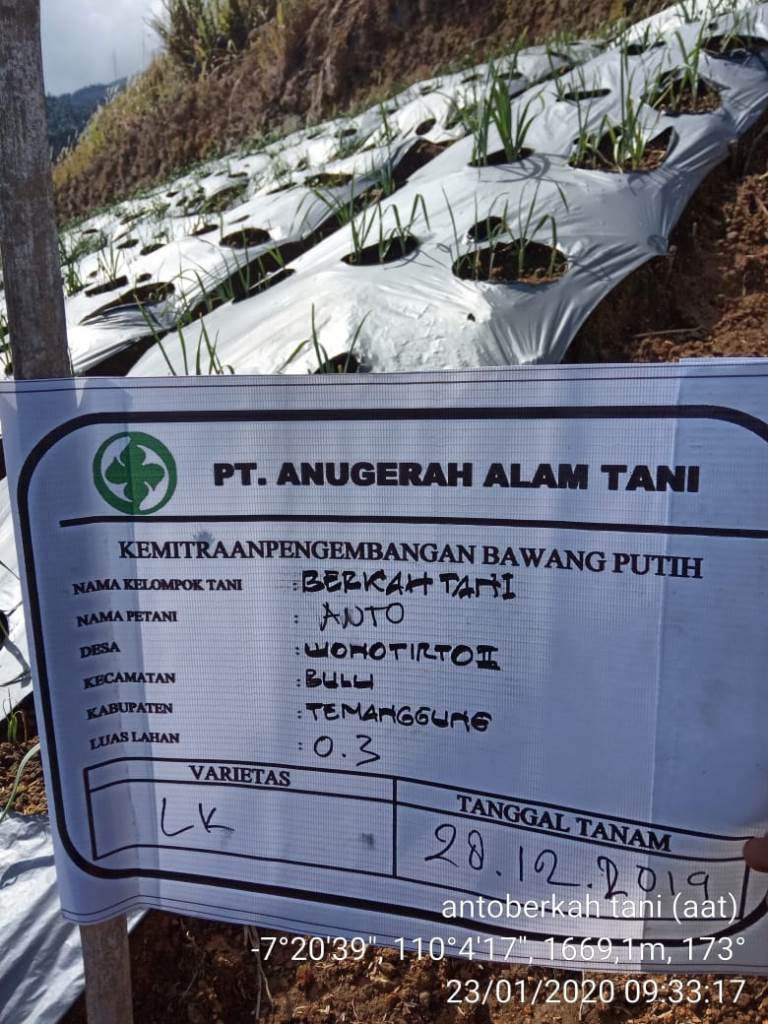 PT. ANUGERAH ALAM TANI
KEMITRAANPENGEMBANGAN BAWANG PUTIH
NAMA KELOMPOK TANI : BERKAH TANI
NAMA PETANI : ANTO
DESA : WONOTIRTO II
KECAMATAN : BULU
KABUPATEN : TEMANGGUNG
LUAS LAHAN : 0.3
VARIETAS
TANGGAL TANAM
LK
28.12.2019
antoberkah tani (aat)
-7°20'39", 110°4'17", 1669,1m, 173°
23/01/2020 09:33:17